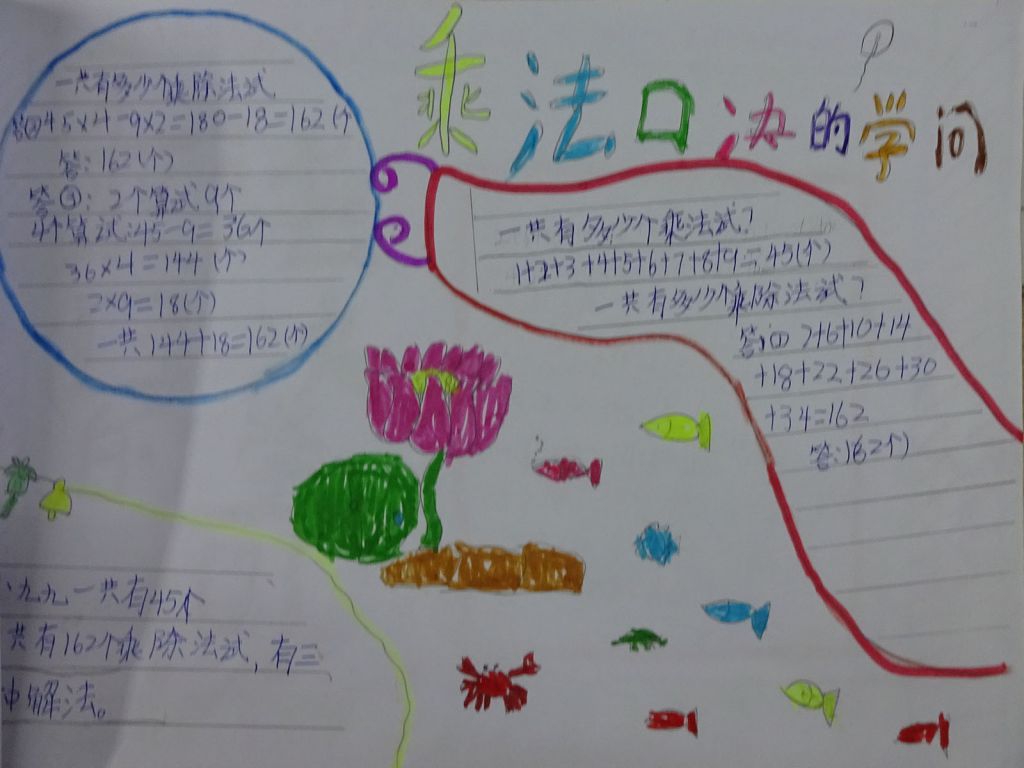 乘法口决的学问
一共有多少个乘除法试
答②45×4-9×2=180-18=162(个
答:162(个)
答③:2个算试9个
4个算试:45-9=36个
36×4=144(个)
2×9=18(个)
一共144+18=162(个)
一共有多少个乘法试?
1+2+3+4+5+6+7+8+9=45(个)
一共有多少个乘除法试?
答:① 2+6+10+14
+18+22+26+30
+34=162
答:162个)
九九一共有45个
共有162个乘除法试,有三
中解法。